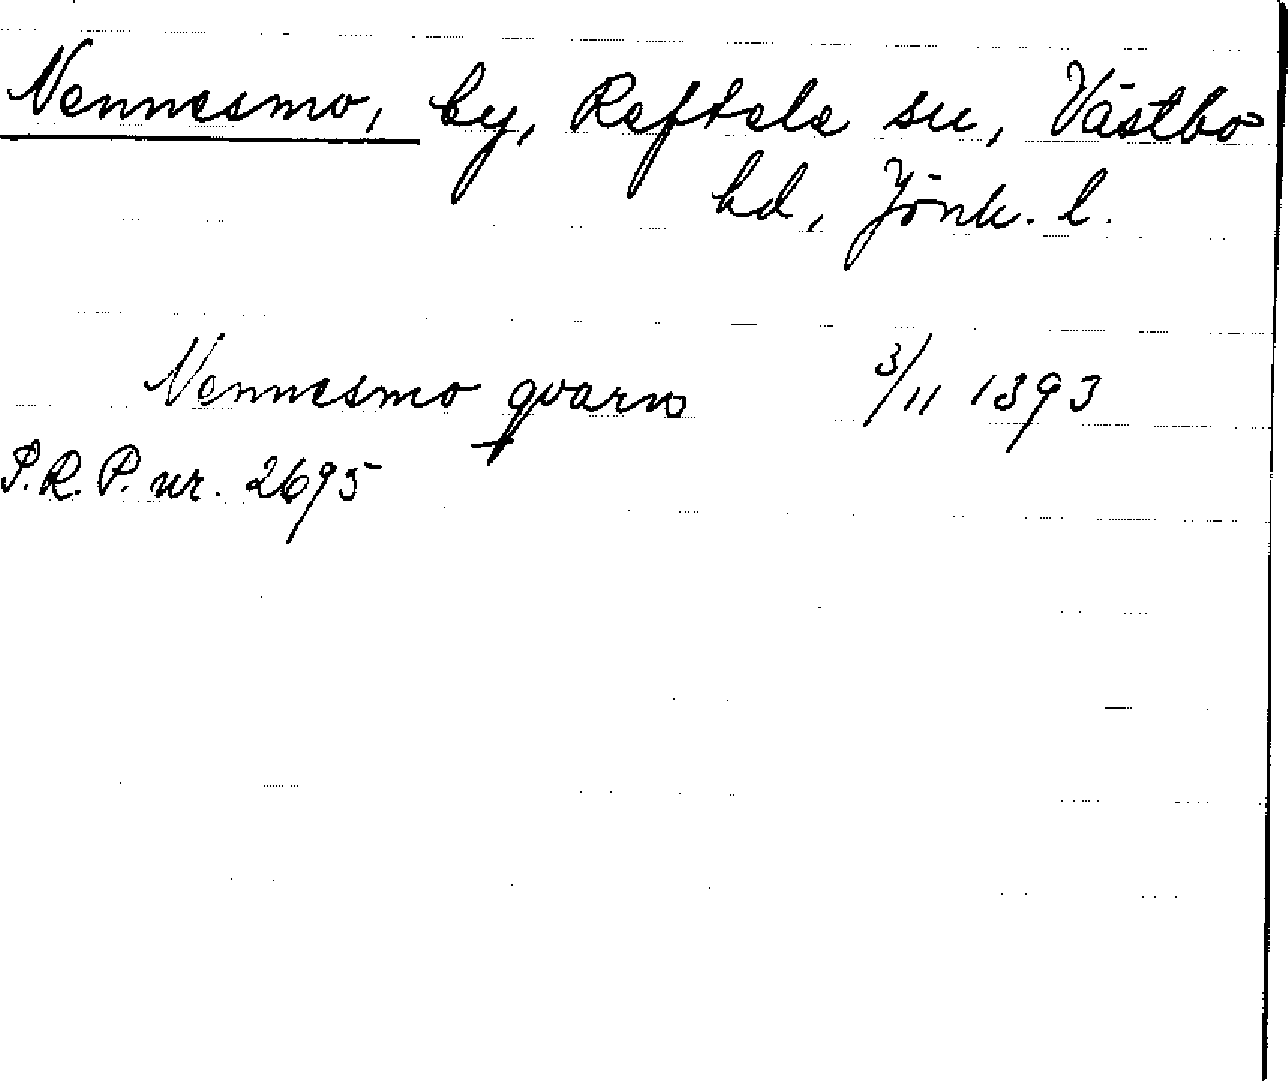 Nennesmo, by, Reftele sn, Västbo
hd, Jönk. l.
Nennesmo qvarn 3/11 1393
P.R.P. nr. 2695